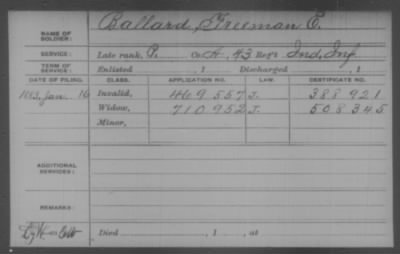 NAME OF SOLDIER: Ballard, Freeman E.
SERVICE: Late rank, P. Co. A, 43 Reg't Ind. Inf.
TERM OF SERVICE: Enlisted , 1 Discharged , 1
DATE OF FILING. CLASS. APPLICATION NO. LAW. CERTIFICATE NO.
1883, Jan. 16 Invalid, 469 557 J. 388 921
Widow, 710 952 J. 508 345
Minor,
ADDITIONAL SERVICES:
REMARKS:
Died , 1 , at